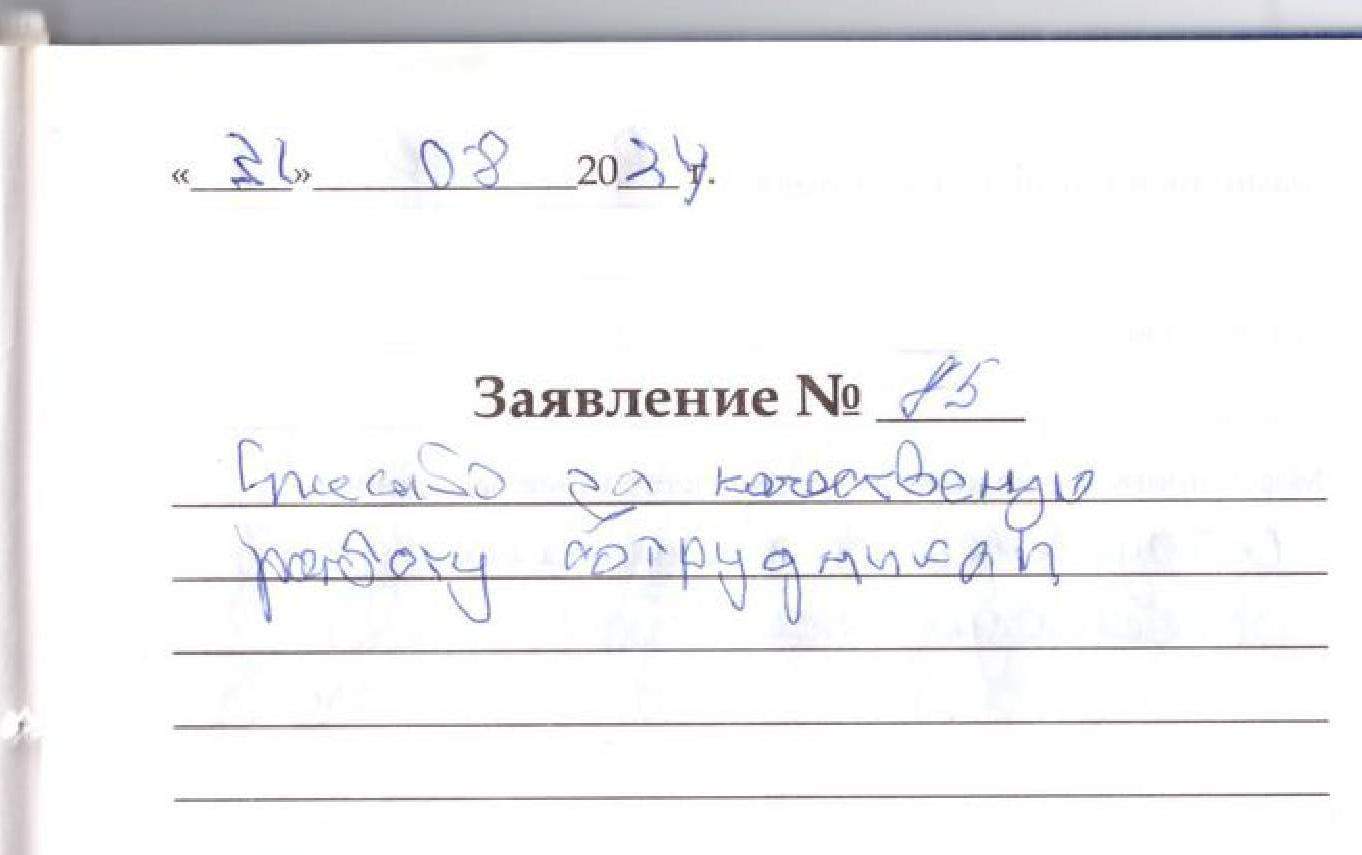 «31» 08 2024 г.
Заявление № 85
Спасибо за качественую
работу сотрудникам